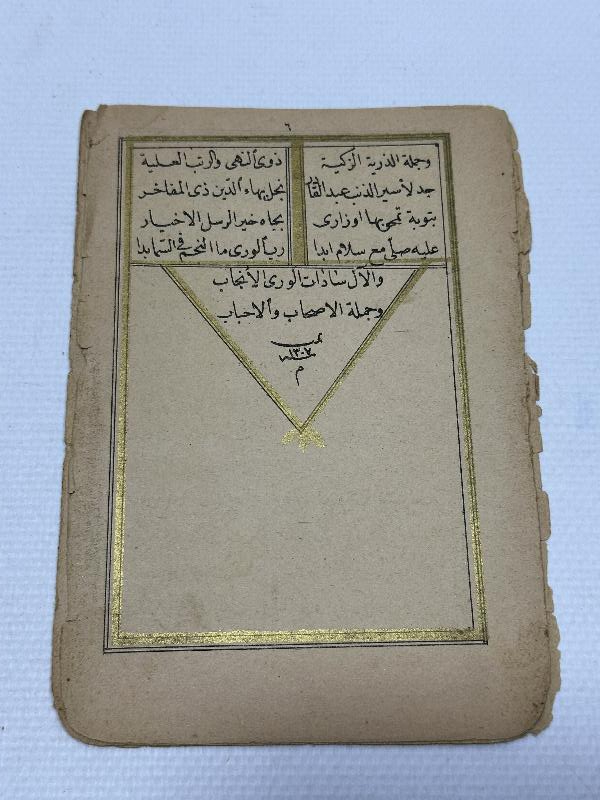 ٦
وجملة الذرية الزكية ذوى النهى والرتب العلية
جد لأسير الذنب عبد القادر نجل بهاء الدين ذى المفاخر
بتوبة تمحو بها اوزارى بجاه خير الرسل الاخيار
عليه صلى مع سلام ابدا رب الورى ما النجم فى السما بدا
والآل سادات الورى الأنجاب
وجملة الاصحاب والاحباب
تمت
سنة ١٣٠٢
م